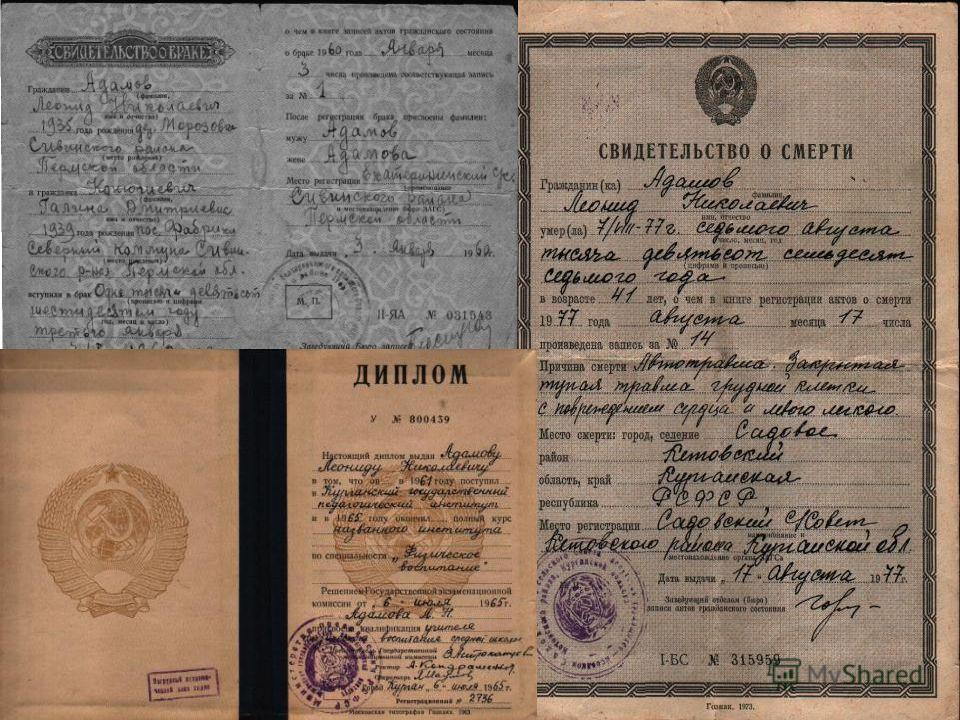 СВИДЕТЕЛЬСТВО О БРАКЕ
Гражданин Адамов
(фамилия,
Леонид Николаевич
имя и отчество)
1935 года рождения дер. Морозовка
Сивинского района
(место рождения)
Пермской области
и гражданка
(фамилия,
Галина Дмитриевна
имя и отчество)
1939 года рождения пос. Фабрика
Северный Коммунар Сивин-
(место рождения)
ского р-на Пермской обл.
вступили в брак Одна тысяча девятьсот
(прописью и цифрами
шестидесятом году
год, месяц и число)
третьего января
о чем в книге записей актов гражданского состояния
о браке 1960 года Января месяца
3 числа произведена соответствующая запись
за № 1
После регистрации брака присвоены фамилии:
мужу Адамов
жене Адамова
Место регистрации Екатерининский
(наименование
Сивинского района
и местонахождение бюро ЗАГС)
Пермской области
Дата выдачи „3" января 1960 г.
М. П.
II-ЯА № 031543
Заведующий Бюро записей
ДИПЛОМ
У № 800439
Настоящий диплом выдан Адамову
Леониду Николаевичу
в том, что он в 1961 году поступил
в Курганский государственный
педагогический институт
и в 1965 году окончил полный курс
названного института
по специальности „Физическое
воспитание"
Решением Государственной экзаменационной
комиссии от „6" июля 1965 г.
Адамову Л. Н.
присвоена квалификация учителя
воспитания средней школы
Государственной
экзаменационной комиссии
Ректор
Секретарь
Город Курган „6" июля 1965 г.
Регистрационный № 2736
Московская типография Гознака. 1963.
СВИДЕТЕЛЬСТВО О СМЕРТИ
Гражданин (ка) Адамов
фамилия,
Леонид Николаевич
имя, отчество
умер(ла) 7/VIII-77 г. седьмого августа
число, месяц, год
тысяча девятьсот семьдесят
(цифрами и прописью)
седьмого года
в возрасте 41 лет, о чем в книге регистрации актов о смерти
1977 года августа месяца 17 числа
произведена запись за № 14
Причина смерти Автотравма. Закрытая
тупая травма грудной клетки
с повреждением сердца и левого легкого.
Место смерти: город, селение Садовое
район Кетовский
область, край Курганская
республика РСФСР
Место регистрации Садовский с/совет
наименование и
Кетовского района Курганской обл
местонахождение органа ЗАГСа
Дата выдачи „17" августа 1977 г.
Заведующий отделом (бюро)
записи актов гражданского состояния
I-БС № 315959
Гознак. 1973.
MyShared